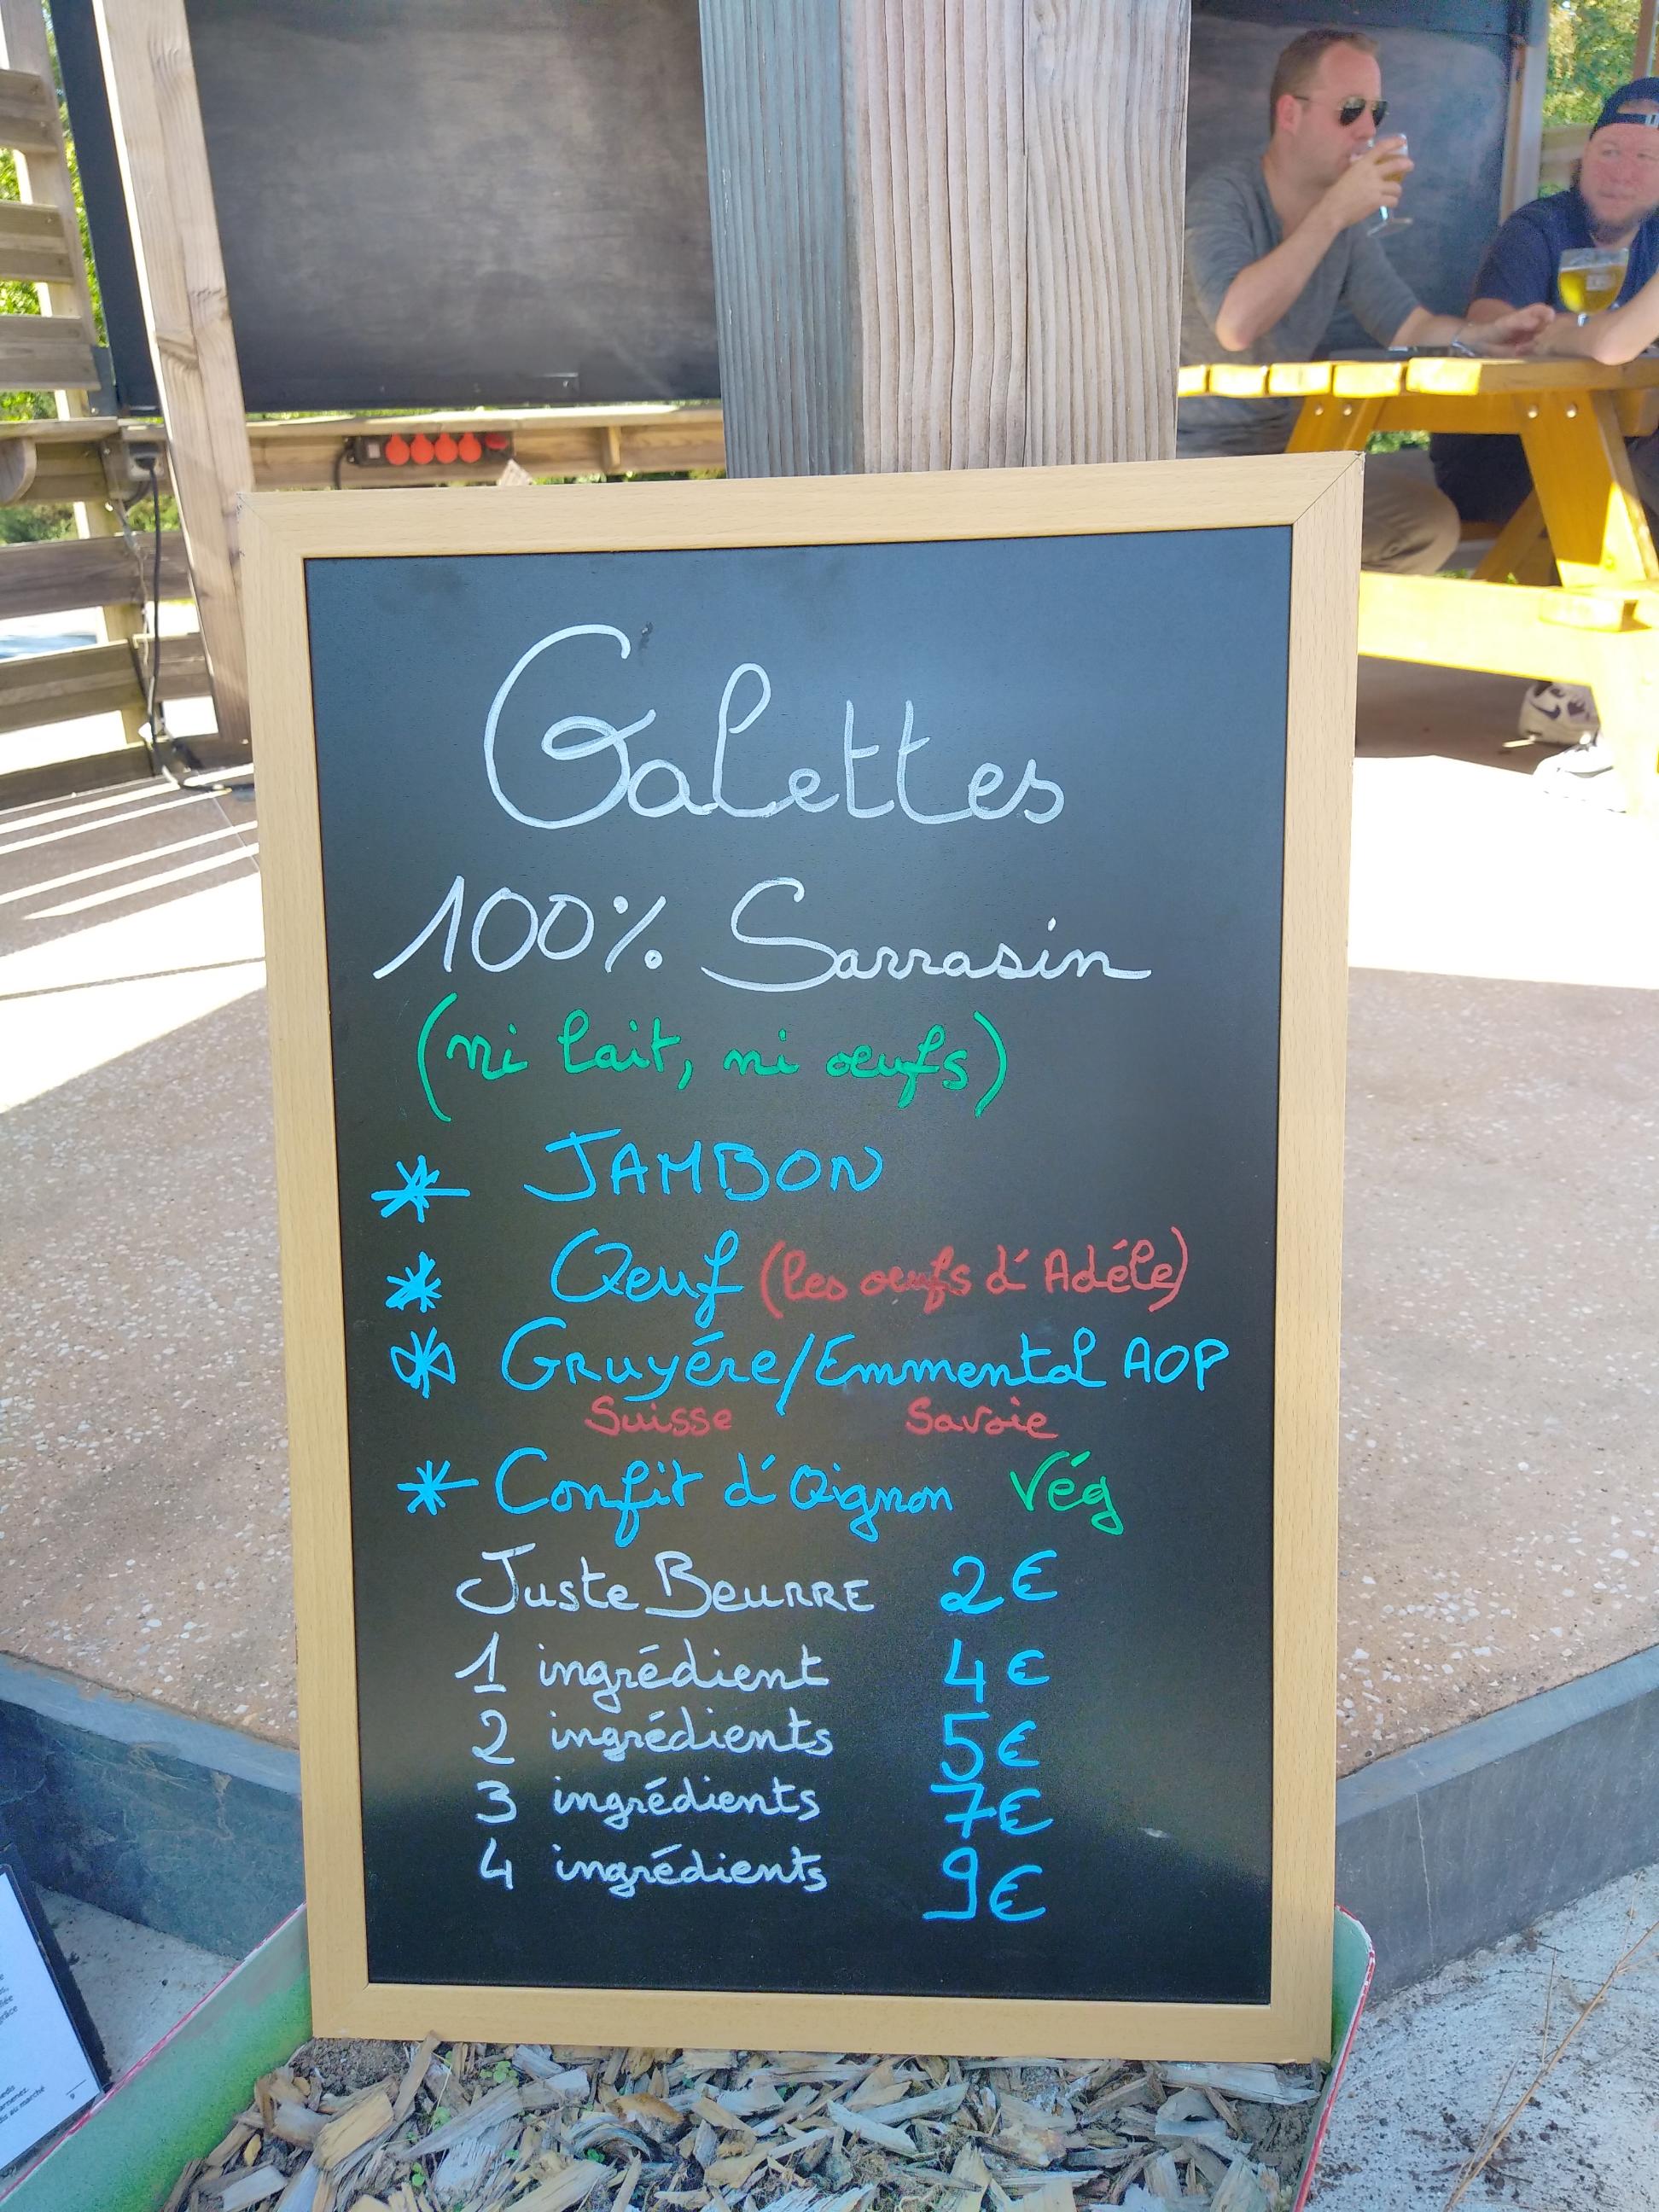 Galettes
100% Sarrasin
(ni lait, ni œufs)
* JAMBON
* Œuf (les œufs d'Adéle)
* GRuyére/Emmental AOP
Suisse Savoie
* Confit d'Oignon Vég
Juste BeuRRE 2€
1 ingrédient 4€
2 ingrédients 5€
3 ingrédients 7€
4 ingrédients 9€